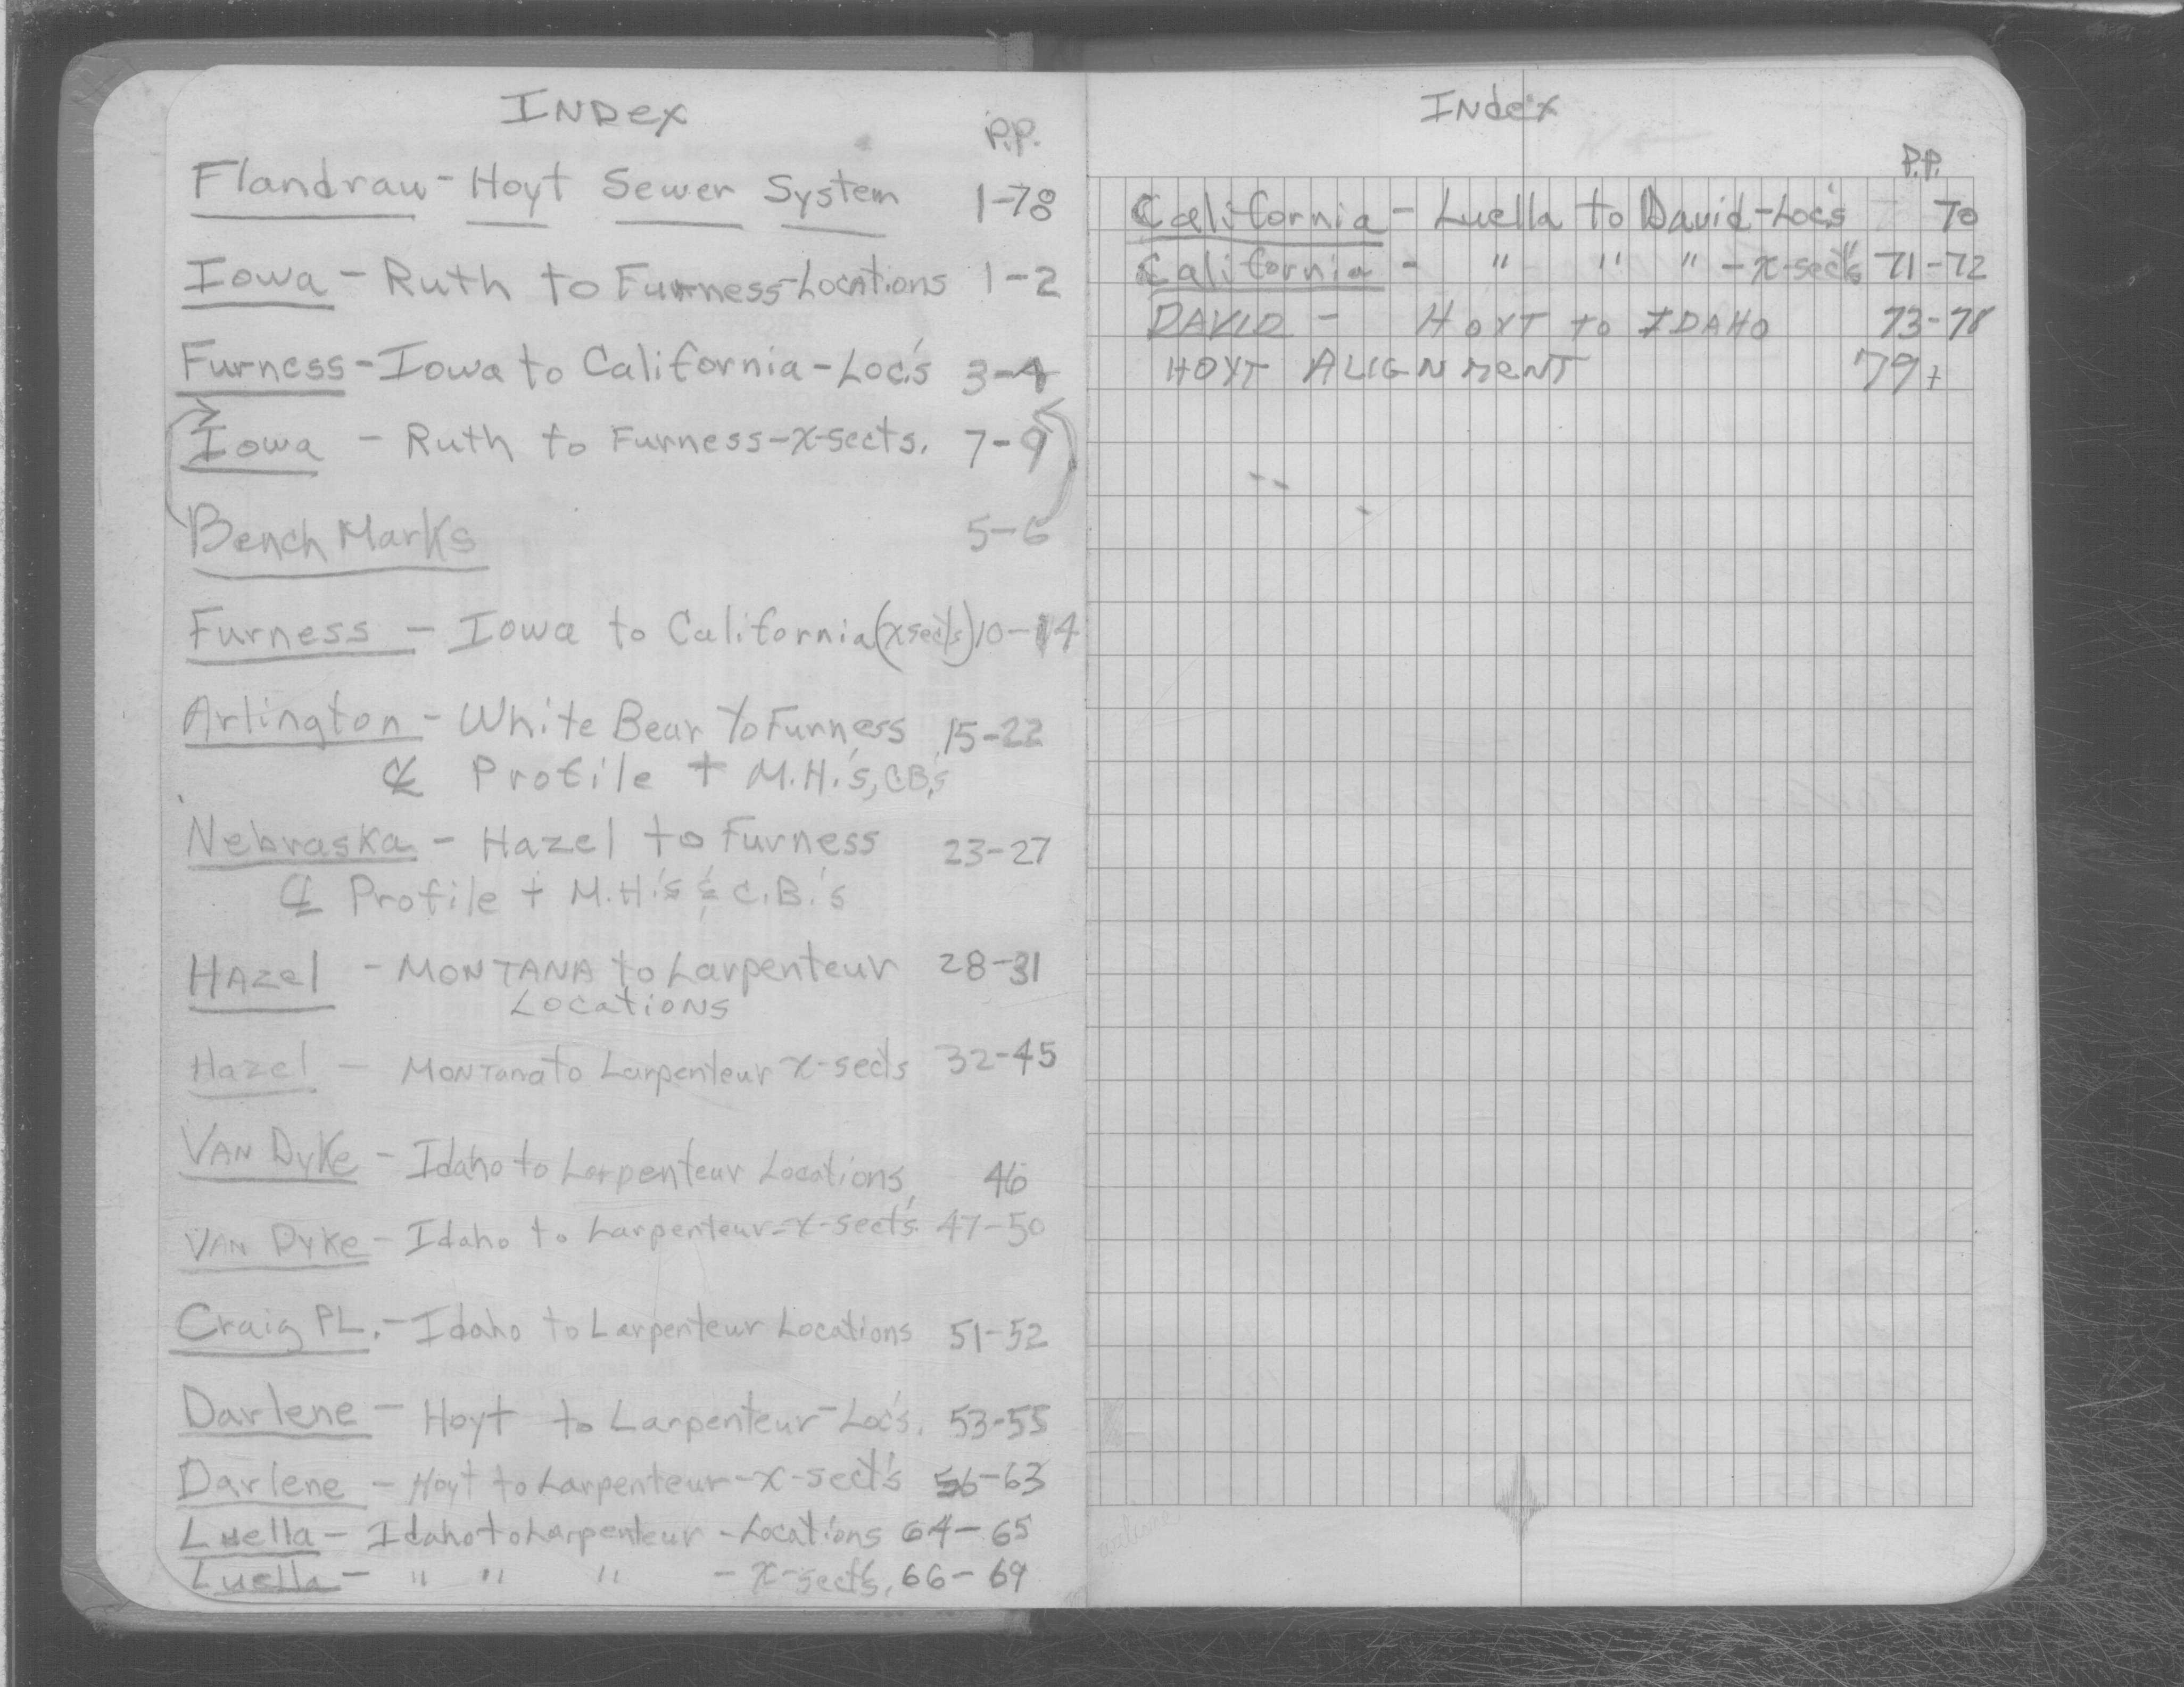 INDex
P.P.
Flandrau - Hoyt Sewer System 1-78
Iowa - Ruth to Furness-Locations 1-2
Furness - Iowa to California - Loc's 3-4
Iowa - Ruth to Furness-x-sects. 7-9
Bench Marks 5-6
Furness - Iowa to California (xsect's) 10-14
Arlington - White Bear to Furness 15-22
℄ Profile + M.H.'s, C.B.'s
Nebraska - Hazel to Furness 23-27
℄ Profile + M.H.'s & C.B.'s
HAzel - MONTANA to Larpenteur 28-31
LocatioNs
Hazel - MONTana to Larpenteur x-sects 32-45
VAN DyKe - Idaho to Larpenteur Locations, 46
VAN DyKe - Idaho to Larpenteur-x-sect's 47-50
Craig PL. - Idaho to Larpenteur Locations 51-52
Darlene - Hoyt to Larpenteur-Loc's. 53-55
Darlene - Hoyt to Larpenteur-x-sect's 56-63
Luella - Idaho to Larpenteur - Locations 64-65
Luella - " " " - x-sect's, 66-69
INdex
P.P.
California - Luella to David-Loc's 70
California - " " " - x-sect's 71-72
DAVID - HOYT to IDAHO 73-78
HOYT ALIGNMENT 79+